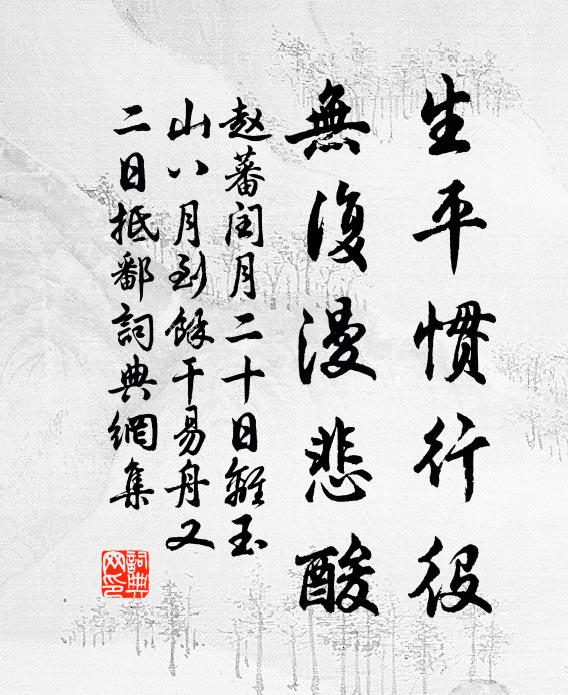 生平惯行役
無復漫悲酸
赵蕃闰月二十日離玉
山八月到餘干易舟又
二日抵鄱詞典網集
詞典
网印